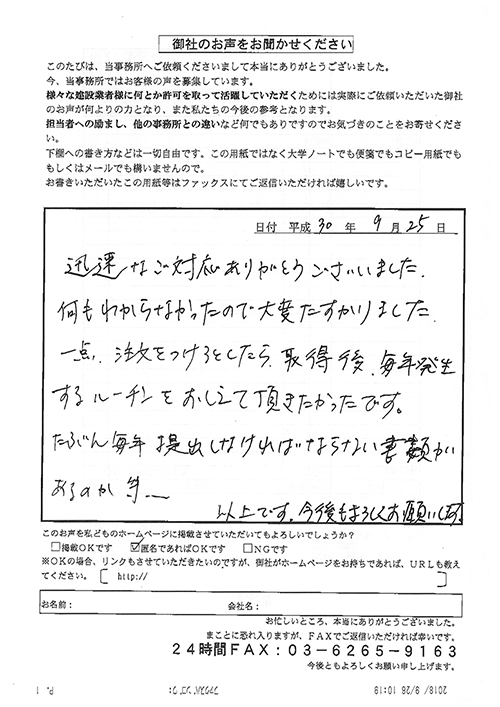 御社のお声をお聞かせください
このたびは、当事務所へご依頼くださいまして本当にありがとうございました。
今、当事務所ではお客様の声を募集しています。
様々な建設業者様に何とか許可を取って活躍していただくためには実際にご依頼いただいた御社
のお声が何よりの力となり、また私たちの今後の参考となります。
担当者への励まし、他の事務所との違いなど何でもありですのでお気づきのことをお寄せくださ
い。
下欄への書き方などは一切自由です。この用紙ではなく大学ノートでも便箋でもコピー用紙でも
もしくはメールでも構いませんので。
お書きいただいたこの用紙等はファックスにてご返信いただければ嬉しいです。
日付 平成 30 年 9 月 25 日
迅速なご対応ありがとうございました.
何もわからなかったので大変たすかりました.
一点、注文をつけるとしたら、取得後、毎年発生
するルーチンをおしえて頂きたかったです。
たぶん毎年提出しなければならない書類が
あるのか 等
以上です。今後もよろしくお願いします
このお声を私どものホームページに掲載させていただいてもよろしいでしょうか?
□掲載OKです ☑匿名であればOKです □NGです
※OKの場合、リンクもさせていただきたいのですが、御社がホームページをお持ちであれば、URLも教え
てください。〔 http:// 〕
お名前: 会社名:
お忙しいところ、本当にありがとうございました。
まことに恐れ入りますが、FAXでご返信いただければ幸いです。
24時間FAX:03-6265-9163
今後ともよろしくお願い申し上げます。
2018/ 9/26 10:19
ファクスバンゴウ:
P. 1